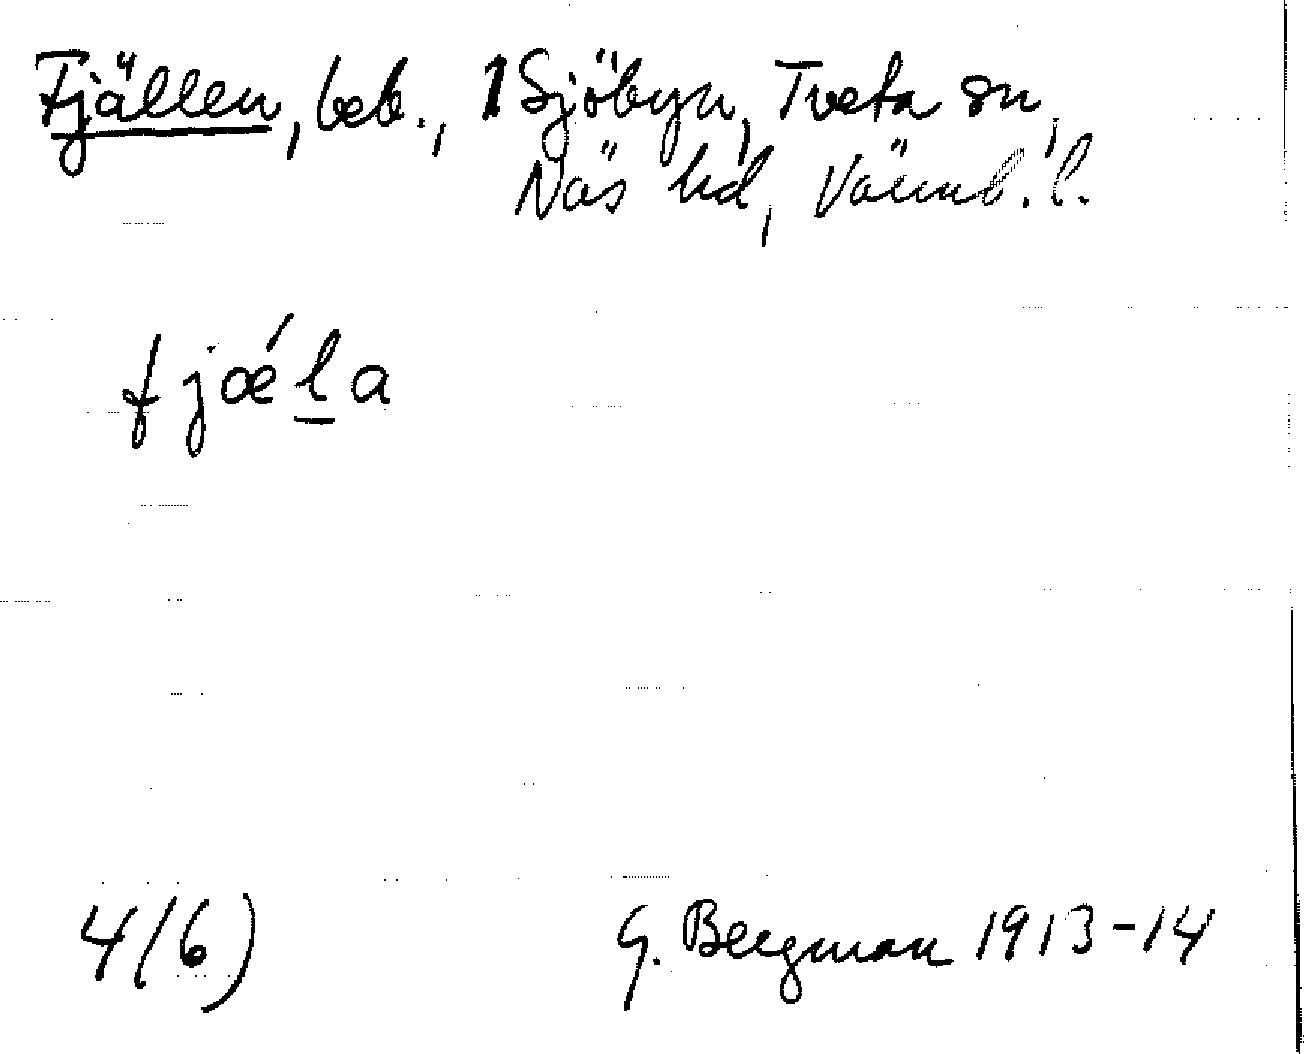 Fjällen, beb., 1 Sjöbyn, Tveta sn,
Näs hd, Värmb. l.
fjǽl̲a
4/(6)
G. Bergman 1913-14